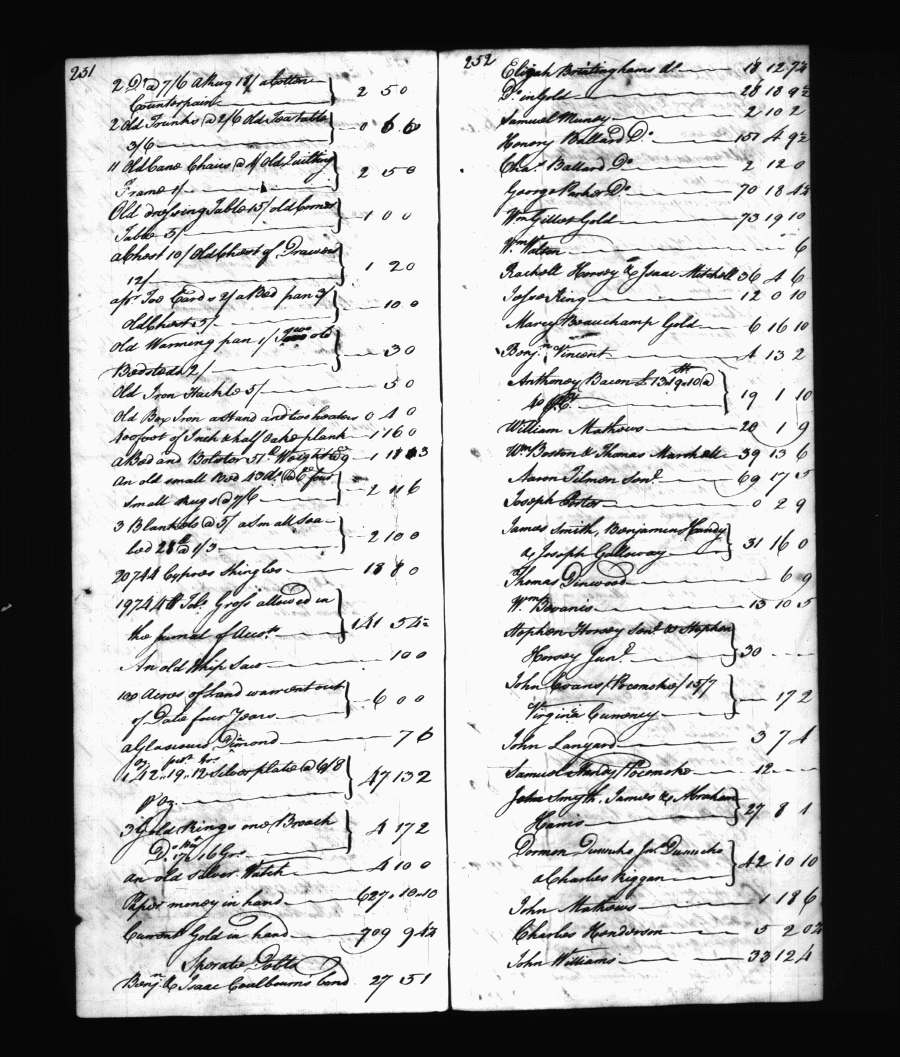 251
2 Do @ 7/6 a Rug 18/ a Cotton
Counterpain 2 5 0
2 Old Trunks @ 2/6 Old Tea table
3/6 0 6 6
11 Old Cane Chairs @ 4/ Old Quilting
Frame 1/ 2 5 0
Old dressing Table 15/ old Corner
Table 5/ 1 0 0
a Chest 10/ Old Chest of Drawers
12/ 1 2 0
a pr Toe Cards 2/ a Bed pan 3/
Old Chest 5/ 10 0
Old Warming pan 1/ Two old
Bedsteds 2/ 3 0
Old Iron Hackle 5/ 5 0
Old Box Iron a Stand and two heaters 0 4 0
400 foot of Inch & half Oake plank 1 16 0
a Bed and Bolster
an old small Bed 43 lb @ four
small Rugs @ 7/6 2 11 6
3 Blankets @ 5/ a Small Sea
bed 28 lb @ 1/3 2 10 0
20744 Cypres Shingles 18 8 0
19744 lb Tobo Gross allowed in
the Jurnal of Accots 141 5 4½
An old Whip Saw 10 0
100 Acres of Land warrent out
of Date four Years 6 0 0
a Glasiours Dimond 7 6
oz pwt grs
142 .. 19 .. 12 Silver plate @ 6/8
pr oz. 47 13 2
3 Gold Rings one Broach
Do 17 16 Grs 4 17 2
an old Silver Watch 4 10 0
Paper money in hand 627 .. 10 .. 10
Current Gold in hand 709 9 4½
Sperate Debts
Benjn & Isaac Coulbourns bond 27 5 1
252
Elijah Brittinghams do 18 12 7½
Do in Gold 28 18 9½
Samuel Muncy 2 10 2
Henery Ballard Do 157 4 9½
Chas Ballard Do 2 12 0
George Parker Do 70 18 4½
Wm Gilliet Gold 73 19 10
Wm Walton 6
Rachell Horsey & Isaac Mitchell 36 4 6
Jesse King 12 0 10
Marcy Beauchamp Gold 6 16 10
Benjn Vincent 4 13 2
Anthoney Bacon £ 13 .. 9 .. 10 @
40 pr Ct 19 1 10
William Mathews 20 1 9
Wm Boston & Thomas Marshell 39 13 6
Aaron Tilmon Senr 69 17 5
Joseph Porter 0 2 9
James Smith, Benjamin Handy
& Joseph Galloway 31 16 0
Thomas Dinwood 6 9
Wm Bevanis 15 10 5
Stephen Horsey Senr & Stephen
Horsey Junr 30
John Evans / Pocemoke / 15/7
Virginia Curreney 17 2
John Lanyard 3 7 4
Samuel Handy / Pocemoke 12
John Smyth, James & Abraham
Harris 27 8 1
Dormon
a Charles Riggan 42 10 10
John Mathews 1 18 6
Charles Henderson 5 2 0½
John Williams 33 12 4